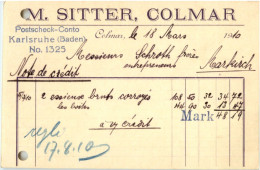 M. SITTER, COLMAR
Postscheck-Conto
Karlsruhe (Baden)
No. 1325
Colmar, le 18 Mars 1910
Messieurs Schroth frères
entrepreneurs Markirch
Note de crédit
2 essieux bruts corroyés 168 50 32 34 72
les boîtes 44 90 30 13 47
à vtre crédit Mark 48 19
réglé
17.8.10